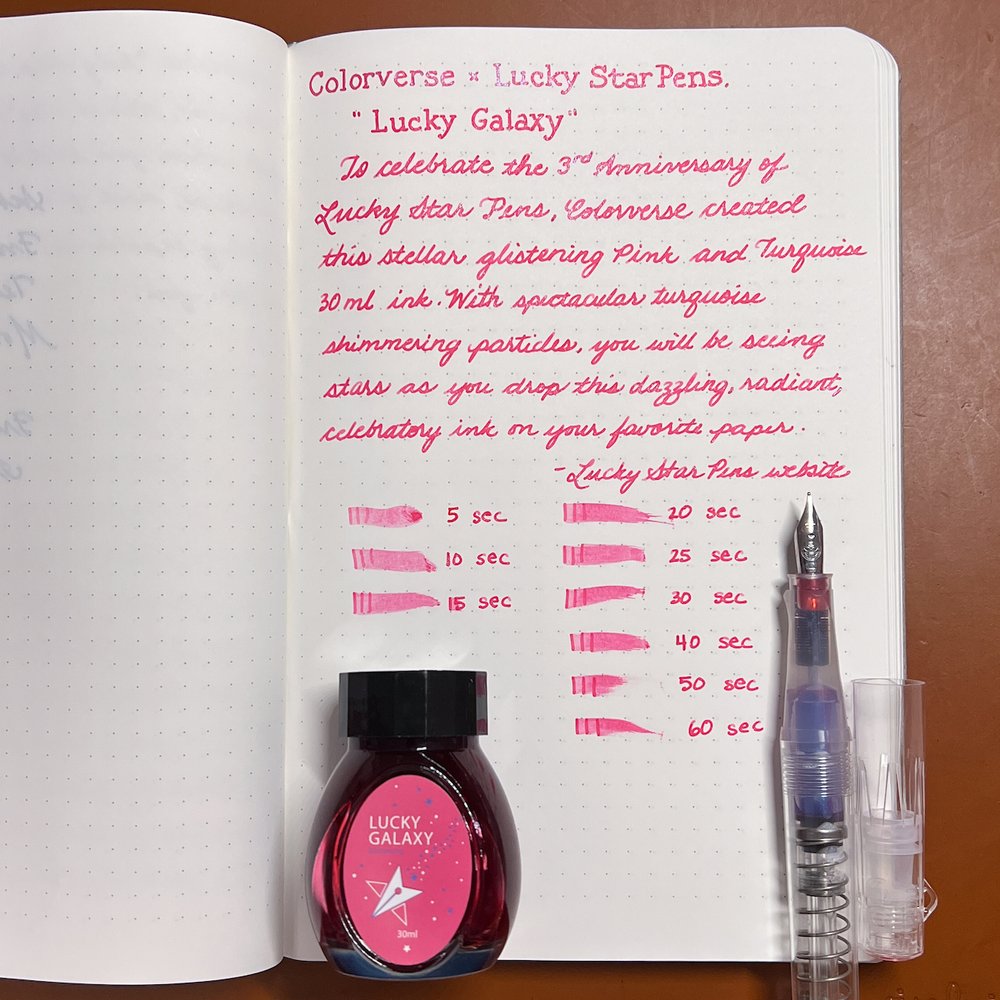 Colorverse × Lucky Star Pens.
"Lucky Galaxy"
To celebrate the 3rd Anniversary of
Lucky Star Pens, Colorverse created
this stellar glistening Pink and Turquoise
30 ml ink. With spectacular turquoise
shimmering particles, you will be seeing
stars as you drop this dazzling, radiant,
celebratory ink on your favorite paper.
-Lucky Star Pens website
5 sec
10 sec
15 sec
20 sec
25 sec
30 sec
40 sec
50 sec
60 sec
LUCKY
GALAXY
30ml